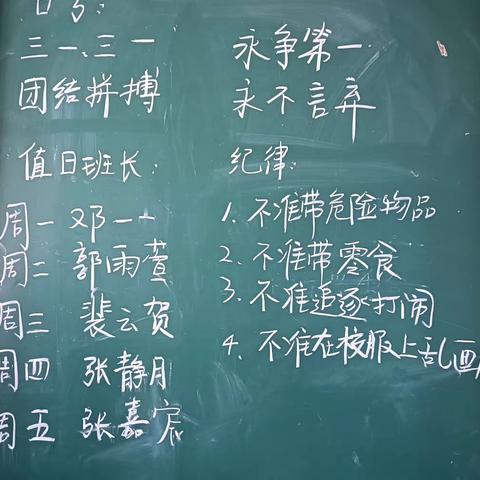 口号:
三一、三一
团结拼搏
值日班长:
周一 邓一一
周二 郭雨萱
周三 裴云贺
周四 张静月
周五 张嘉宸
永争第一
永不言弃
纪律:
1. 不准带危险物品
2. 不准带零食
3. 不准追逐打闹
4. 不准在校服上乱画